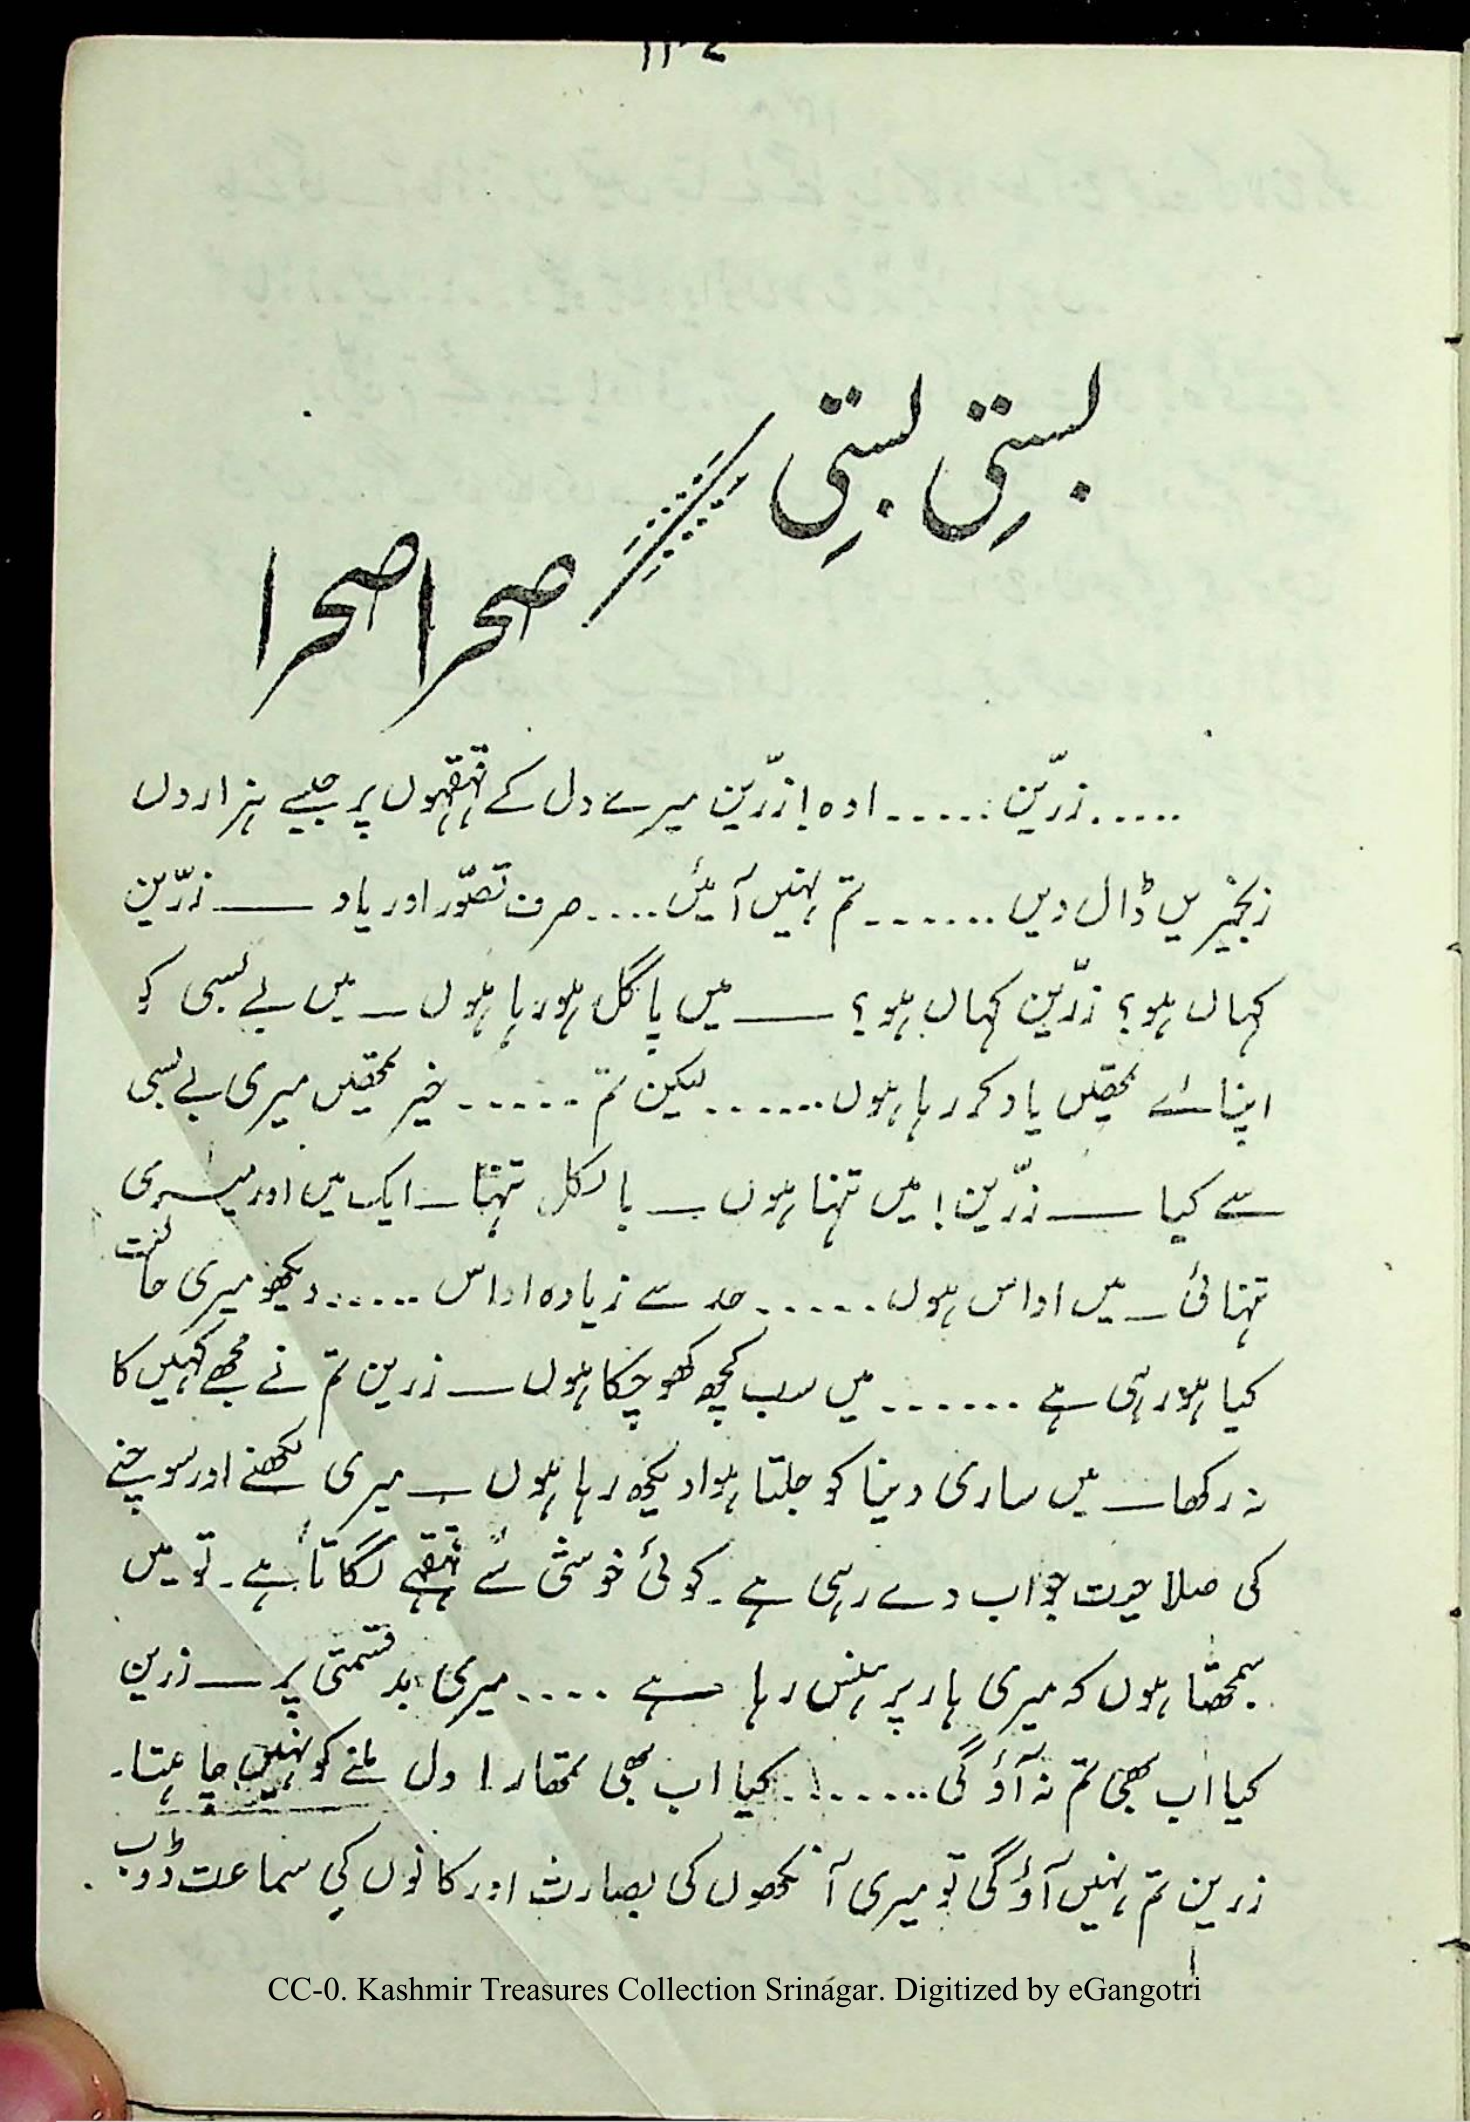 بستی بستی
صحرا صحرا
..... زرّین ...... اوہ! زرّین میرے دل کے قہقہوں پر جیسے ہزاروں
زنجیریں ڈال دیں ....... تم نہیں آئیں ..... صرف تصوّر اور یاد ــــ زرّین
کہاں ہو؟ زرّین کہاں ہو؟ ــــ میں پاگل ہو رہا ہوں ـــ میں بے بسی کو
اپنائے تمھیں یاد کر رہا ہوں ....... لیکن تم ...... خیر تمھیں میری بے بسی
سے کیا ــــ زرّین! میں تنہا ہوں ـــ بالکل تنہا ـــ ایک میں اور میری
تنہائی ـــ میں اداس ہوں ...... حد سے زیادہ اداس ...... دیکھو میری حالت
کیا ہو رہی ہے ....... میں سب کچھ کھو چکا ہوں ـــ زرین تم نے مجھے کہیں کا
نہ رکھا ـــ میں ساری دنیا کو جلتا ہوا دیکھ رہا ہوں ـــ میری لکھنے اور سوچنے
کی صلاحیت جواب دے رہی ہے ۔ کوئی خوشی سے قہقہے لگاتا ہے ۔ تو میں
سمجھتا ہوں کہ میری ہار پر ہنس رہا ہے ..... میری بد قسمتی پر ـــ زرین
کیا اب بھی تم نہ آؤ گی ........ کیا اب بھی تمھارا دل ملنے کو نہیں چاہتا ۔
زرین تم نہیں آؤ گی تو میری آنکھوں کی بصارت اور کانوں کی سماعت ڈوب
CC-0. Kashmir Treasures Collection Srinagar. Digitized by eGangotri